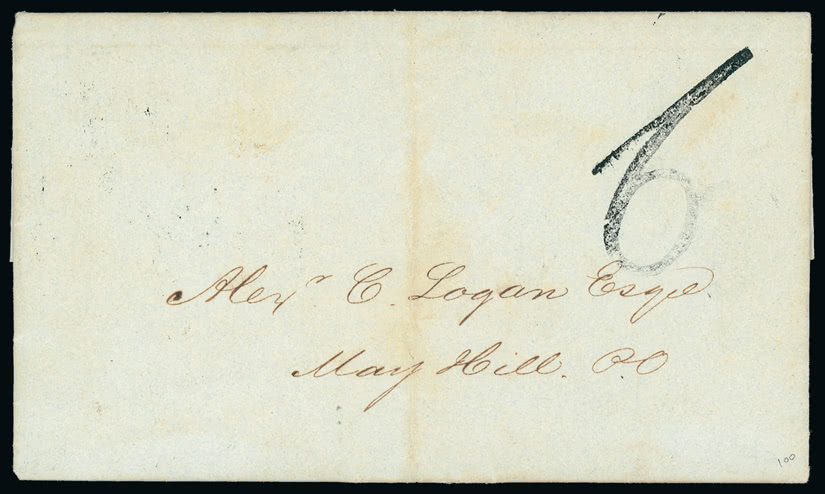 6
Alexr C. Logan Esqe.
May Hill. P.O
100